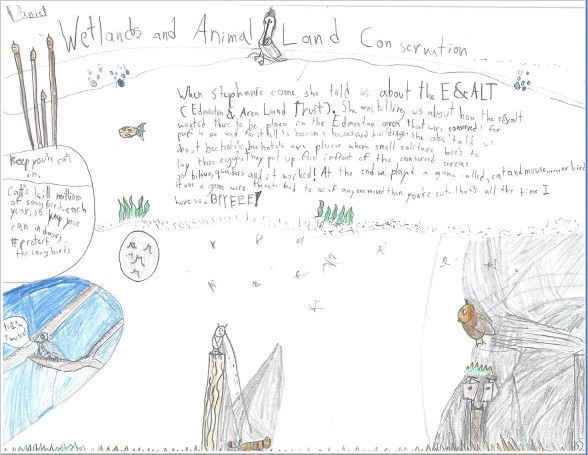 Daniel
Wetlands and Animal Land Conservation
When Stephanie came she told us about the E&ALT
(Edmonton & Area Land Trust). She was telling us about how the e&alt
wanted there to be places in the Edmonton area that were conserved for
to be and not all to become houses and buildings she also told us
about bee hotels, bee hotels are places when solitary bee's to
lay there eggs they put up four infront of the conserved areas
and it worked! At the end we played a game called, cat and mouse
it was a game were had to if any one moved then you're out. that's all the time I
have so.. BYEEEE!
Keep you're cats
in.
Cats kill millions
of song birds each
year, so keep your
cats in doors,
#protect
the song birds